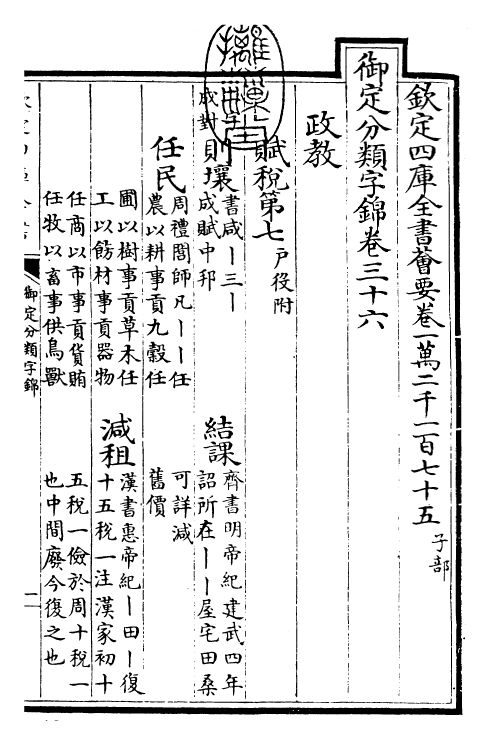 欽定四庫全書薈要卷一萬二千一百七十五 子部
御定分類字錦卷三十六
政教
賦稅第七 戶役附
成對
則壤 書咸丨三丨
成賦中邦
結課 齊書明帝紀建武四年
詔所在丨丨屋宅田桑
可詳減
舊價
任民 周禮閭師凡丨丨任
農以耕事貢九穀任
圃以樹事貢草木任
工以飭材事貢器物
任商以市事貢貨賄
任牧以畜事供鳥獸
減租 漢書惠帝紀丨田丨復
十五稅一注漢家初十
五稅一儉於周十稅一
也中間廢今復之也
御定分類字錦
一